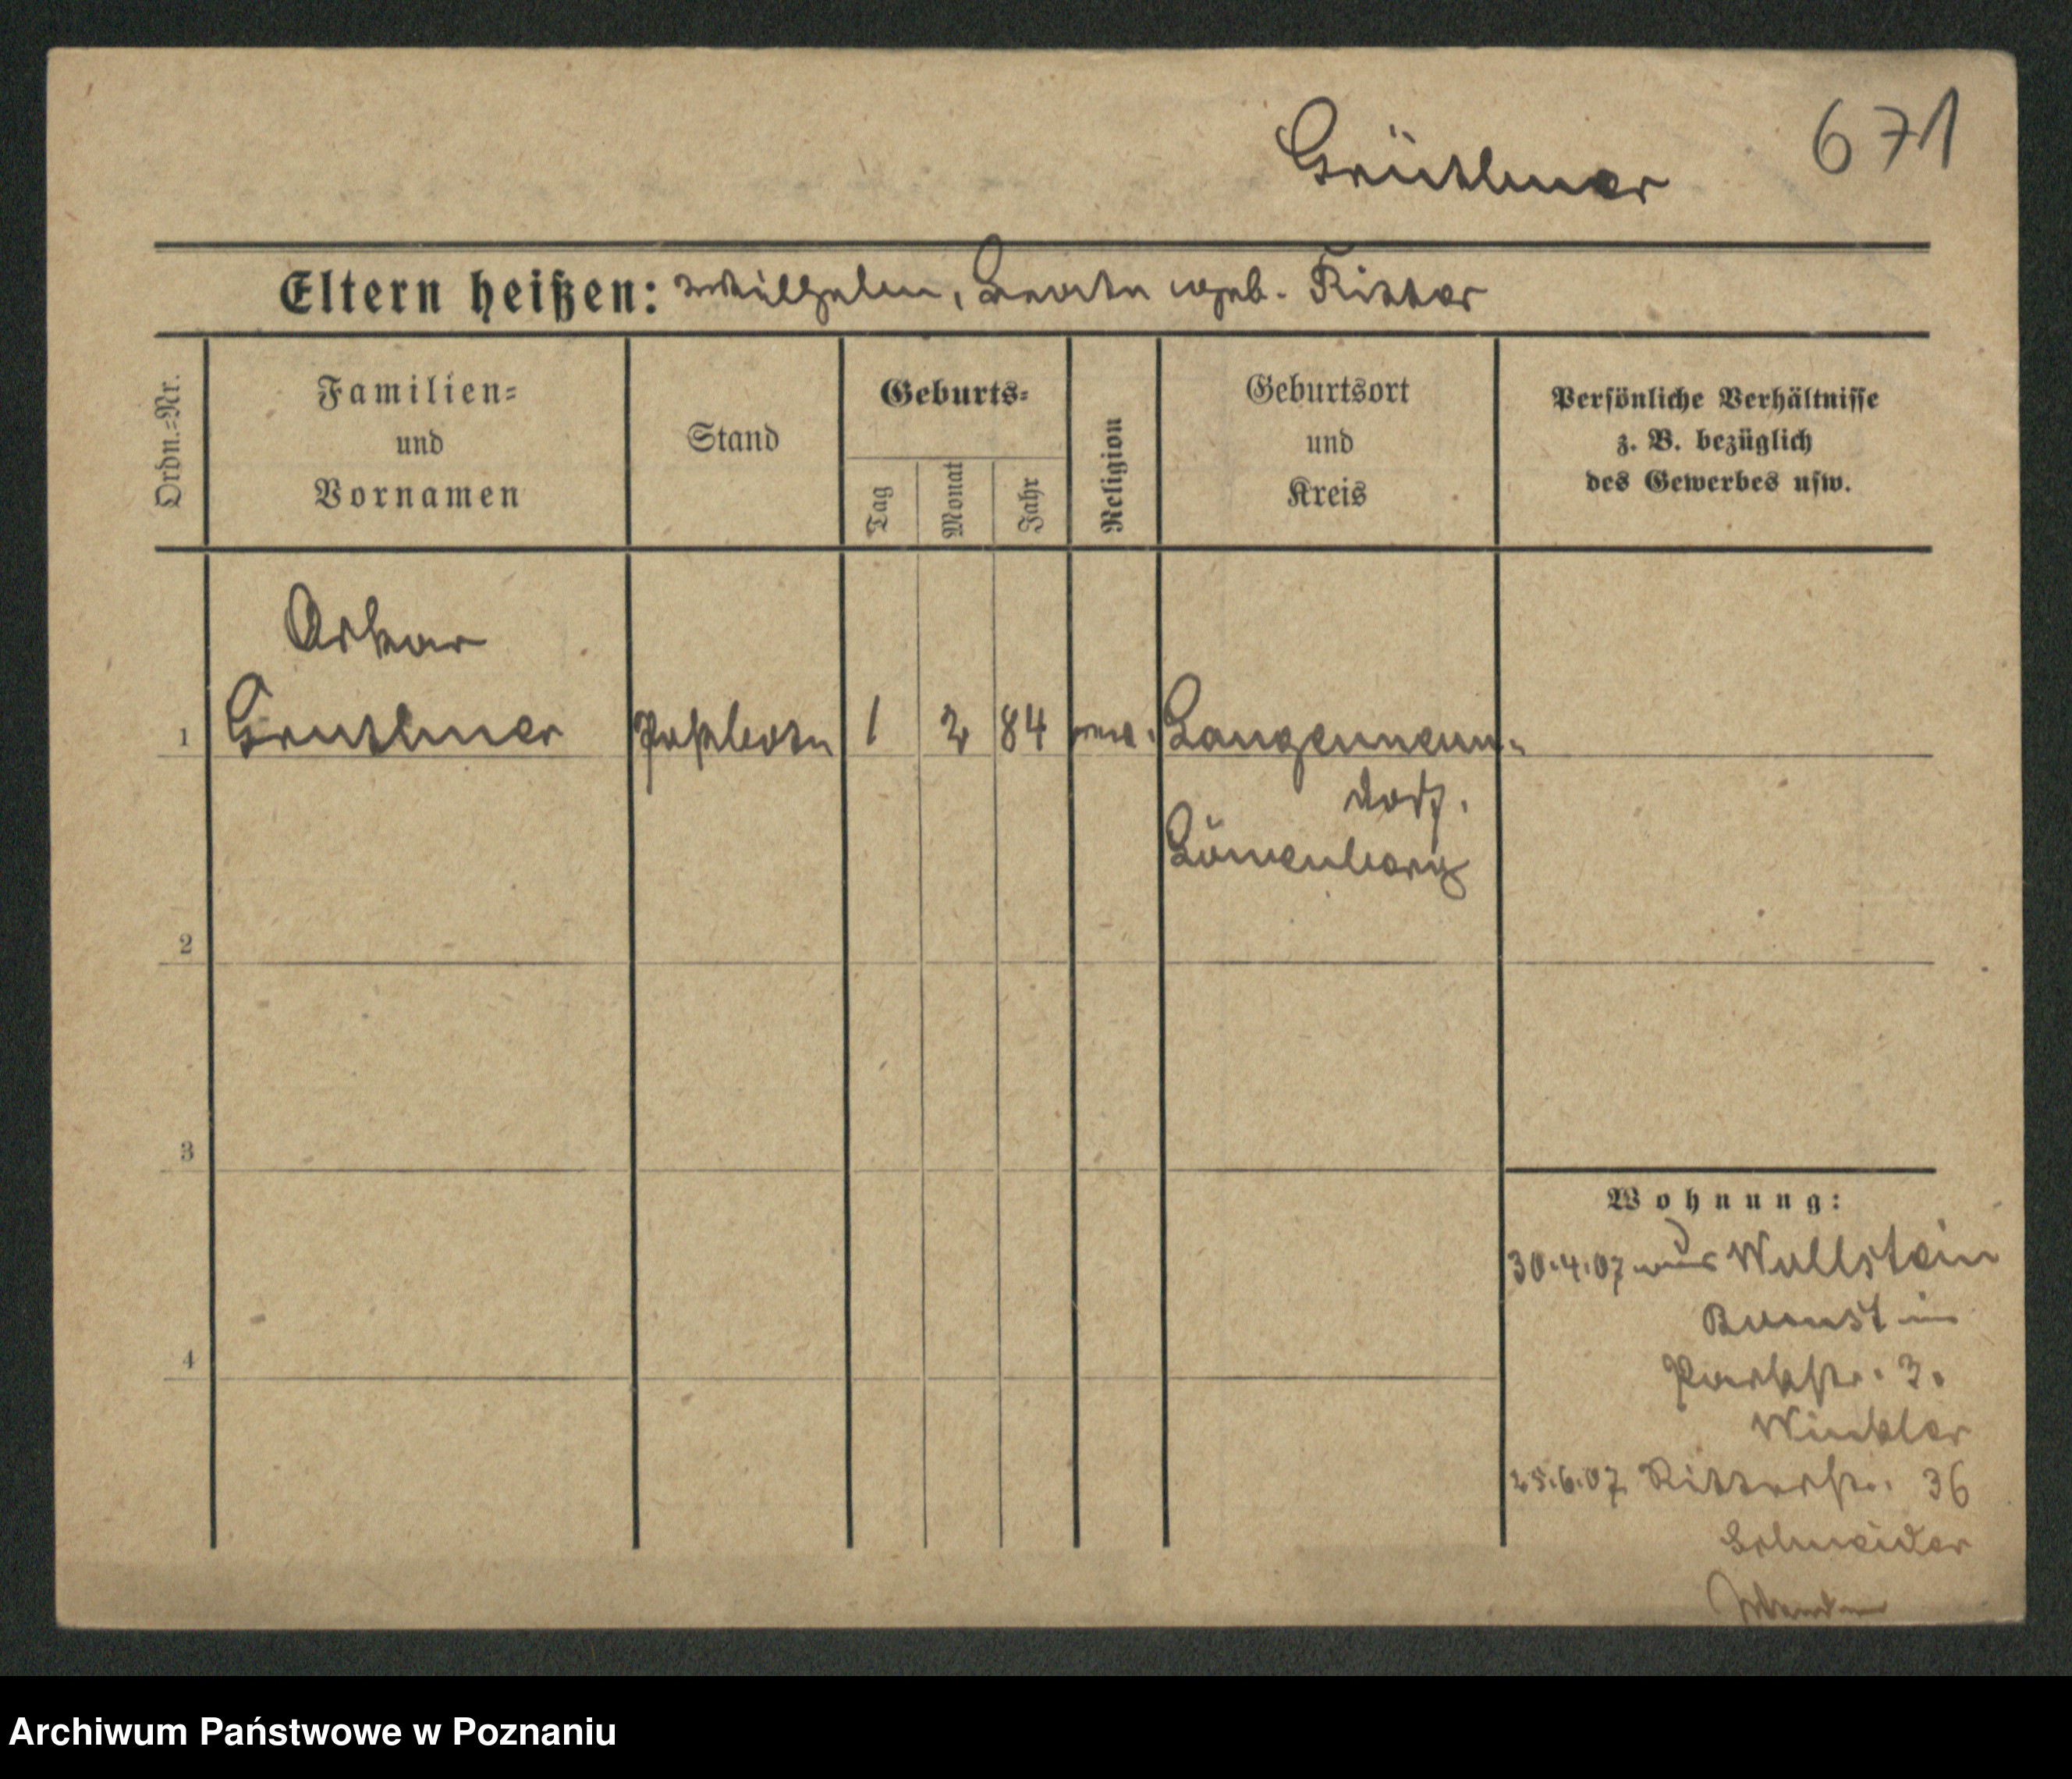 Grüttner 671
Eltern heißen: Wilhelm, geb. Ritter
Ordn.=Nr.
Familien=
und
Vornamen
Stand
Geburts=
Tag
Monat
Jahr
Religion
Geburtsort
und
Kreis
Persönliche Verhältnisse
z. B. bezüglich
des Gewerbes usw.
Oskar
1 Gruttner Postbote 1 2 84 Langenneun-
dorf.
Löwenberg
2
3
4
Wohnung:
30.4.07 aus Wollstein
Bomst in
Parkstr. 3.
Winkler
25.6.07 Ritterstr. 36
Schneider
Archiwum Państwowe w Poznaniu